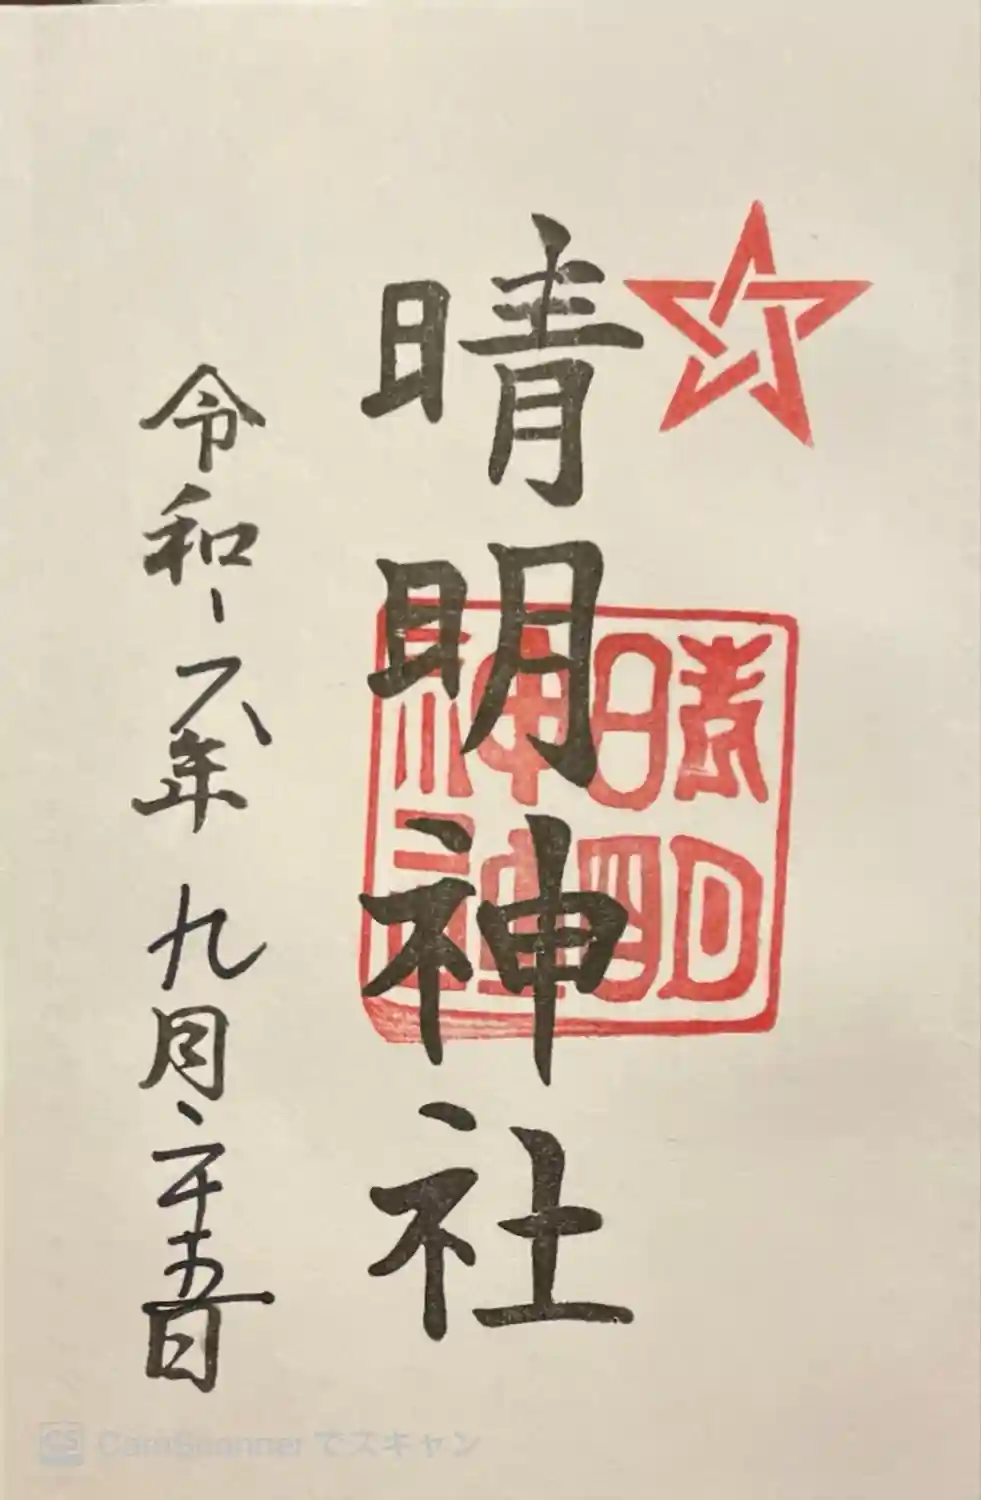 晴明神社
晴明
神社
令和六年九月二十五日
CS CamScanner でスキャン